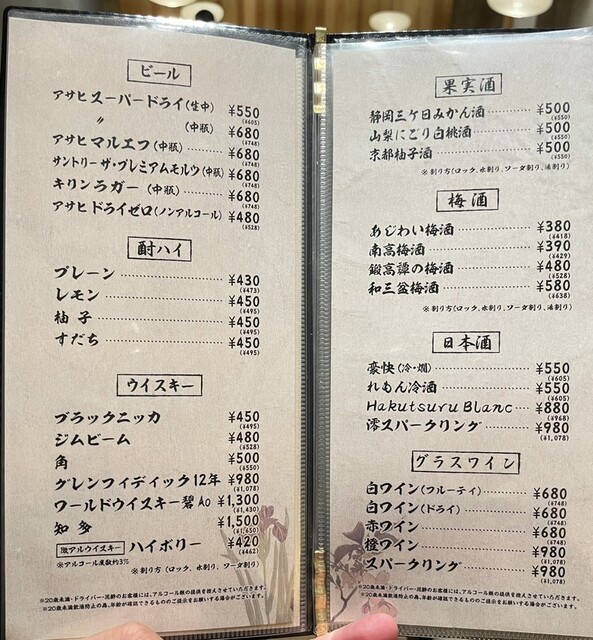 ビール
アサヒ スーパードライ(生中) ¥550
(¥605)
〃 (中瓶) ¥680
(¥748)
アサヒ マルエフ (中瓶) ¥680
(¥748)
サントリー ザ・プレミアムモルツ (中瓶) ¥680
(¥748)
キリンラガー (中瓶) ¥680
(¥748)
アサヒ ドライゼロ(ノンアルコール) ¥480
(¥528)
酎ハイ
プレーン ¥430
(¥473)
レモン ¥450
(¥495)
柚子 ¥450
(¥495)
すだち ¥450
(¥495)
ウイスキー
ブラックニッカ ¥450
(¥495)
ジムビーム ¥480
(¥528)
角 ¥500
(¥550)
グレンフィディック12年 ¥980
(¥1,078)
ワールドウイスキー碧Ao ¥1,300
(¥1,430)
知多 ¥1,500
(¥1,650)
微アルウイスキー ハイボリー ¥420
(¥462)
※アルコール度数約3%
※割り方(ロック、水割り、ソーダ割り)
※20歳未満・ドライバー・泥酔のお客様には、アルコール類の提供を控えさせていただきます。
※20歳未満飲酒防止の為、年齢が確認できるもののご提示をお願いする場合がございます。
果実酒
静岡三ケ日みかん酒 ¥500
(¥550)
山梨にごり白桃酒 ¥500
(¥550)
京都柚子酒 ¥500
(¥550)
※割り方(ロック、水割り、ソーダ割り、湯割り)
梅酒
あじわい梅酒 ¥380
(¥418)
南高梅酒 ¥390
(¥429)
鍛高譚の梅酒 ¥480
(¥528)
和三盆梅酒 ¥580
(¥638)
※割り方(ロック、水割り、ソーダ割り、湯割り)
日本酒
豪快(冷・燗) ¥550
(¥605)
れもん冷酒 ¥550
(¥605)
Hakutsuru Blanc ¥880
(¥968)
澪スパークリング ¥980
(¥1,078)
グラスワイン
白ワイン(フルーティ) ¥680
(¥748)
白ワイン(ドライ) ¥680
(¥748)
赤ワイン ¥680
(¥748)
橙ワイン ¥980
(¥1,078)
スパークリング ¥980
(¥1,078)
※20歳未満・ドライバー・泥酔のお客様には、アルコール類の提供を控えさせていただきます。
※20歳未満飲酒防止の為、年齢が確認できるもののご提示をお願いする場合がございます。